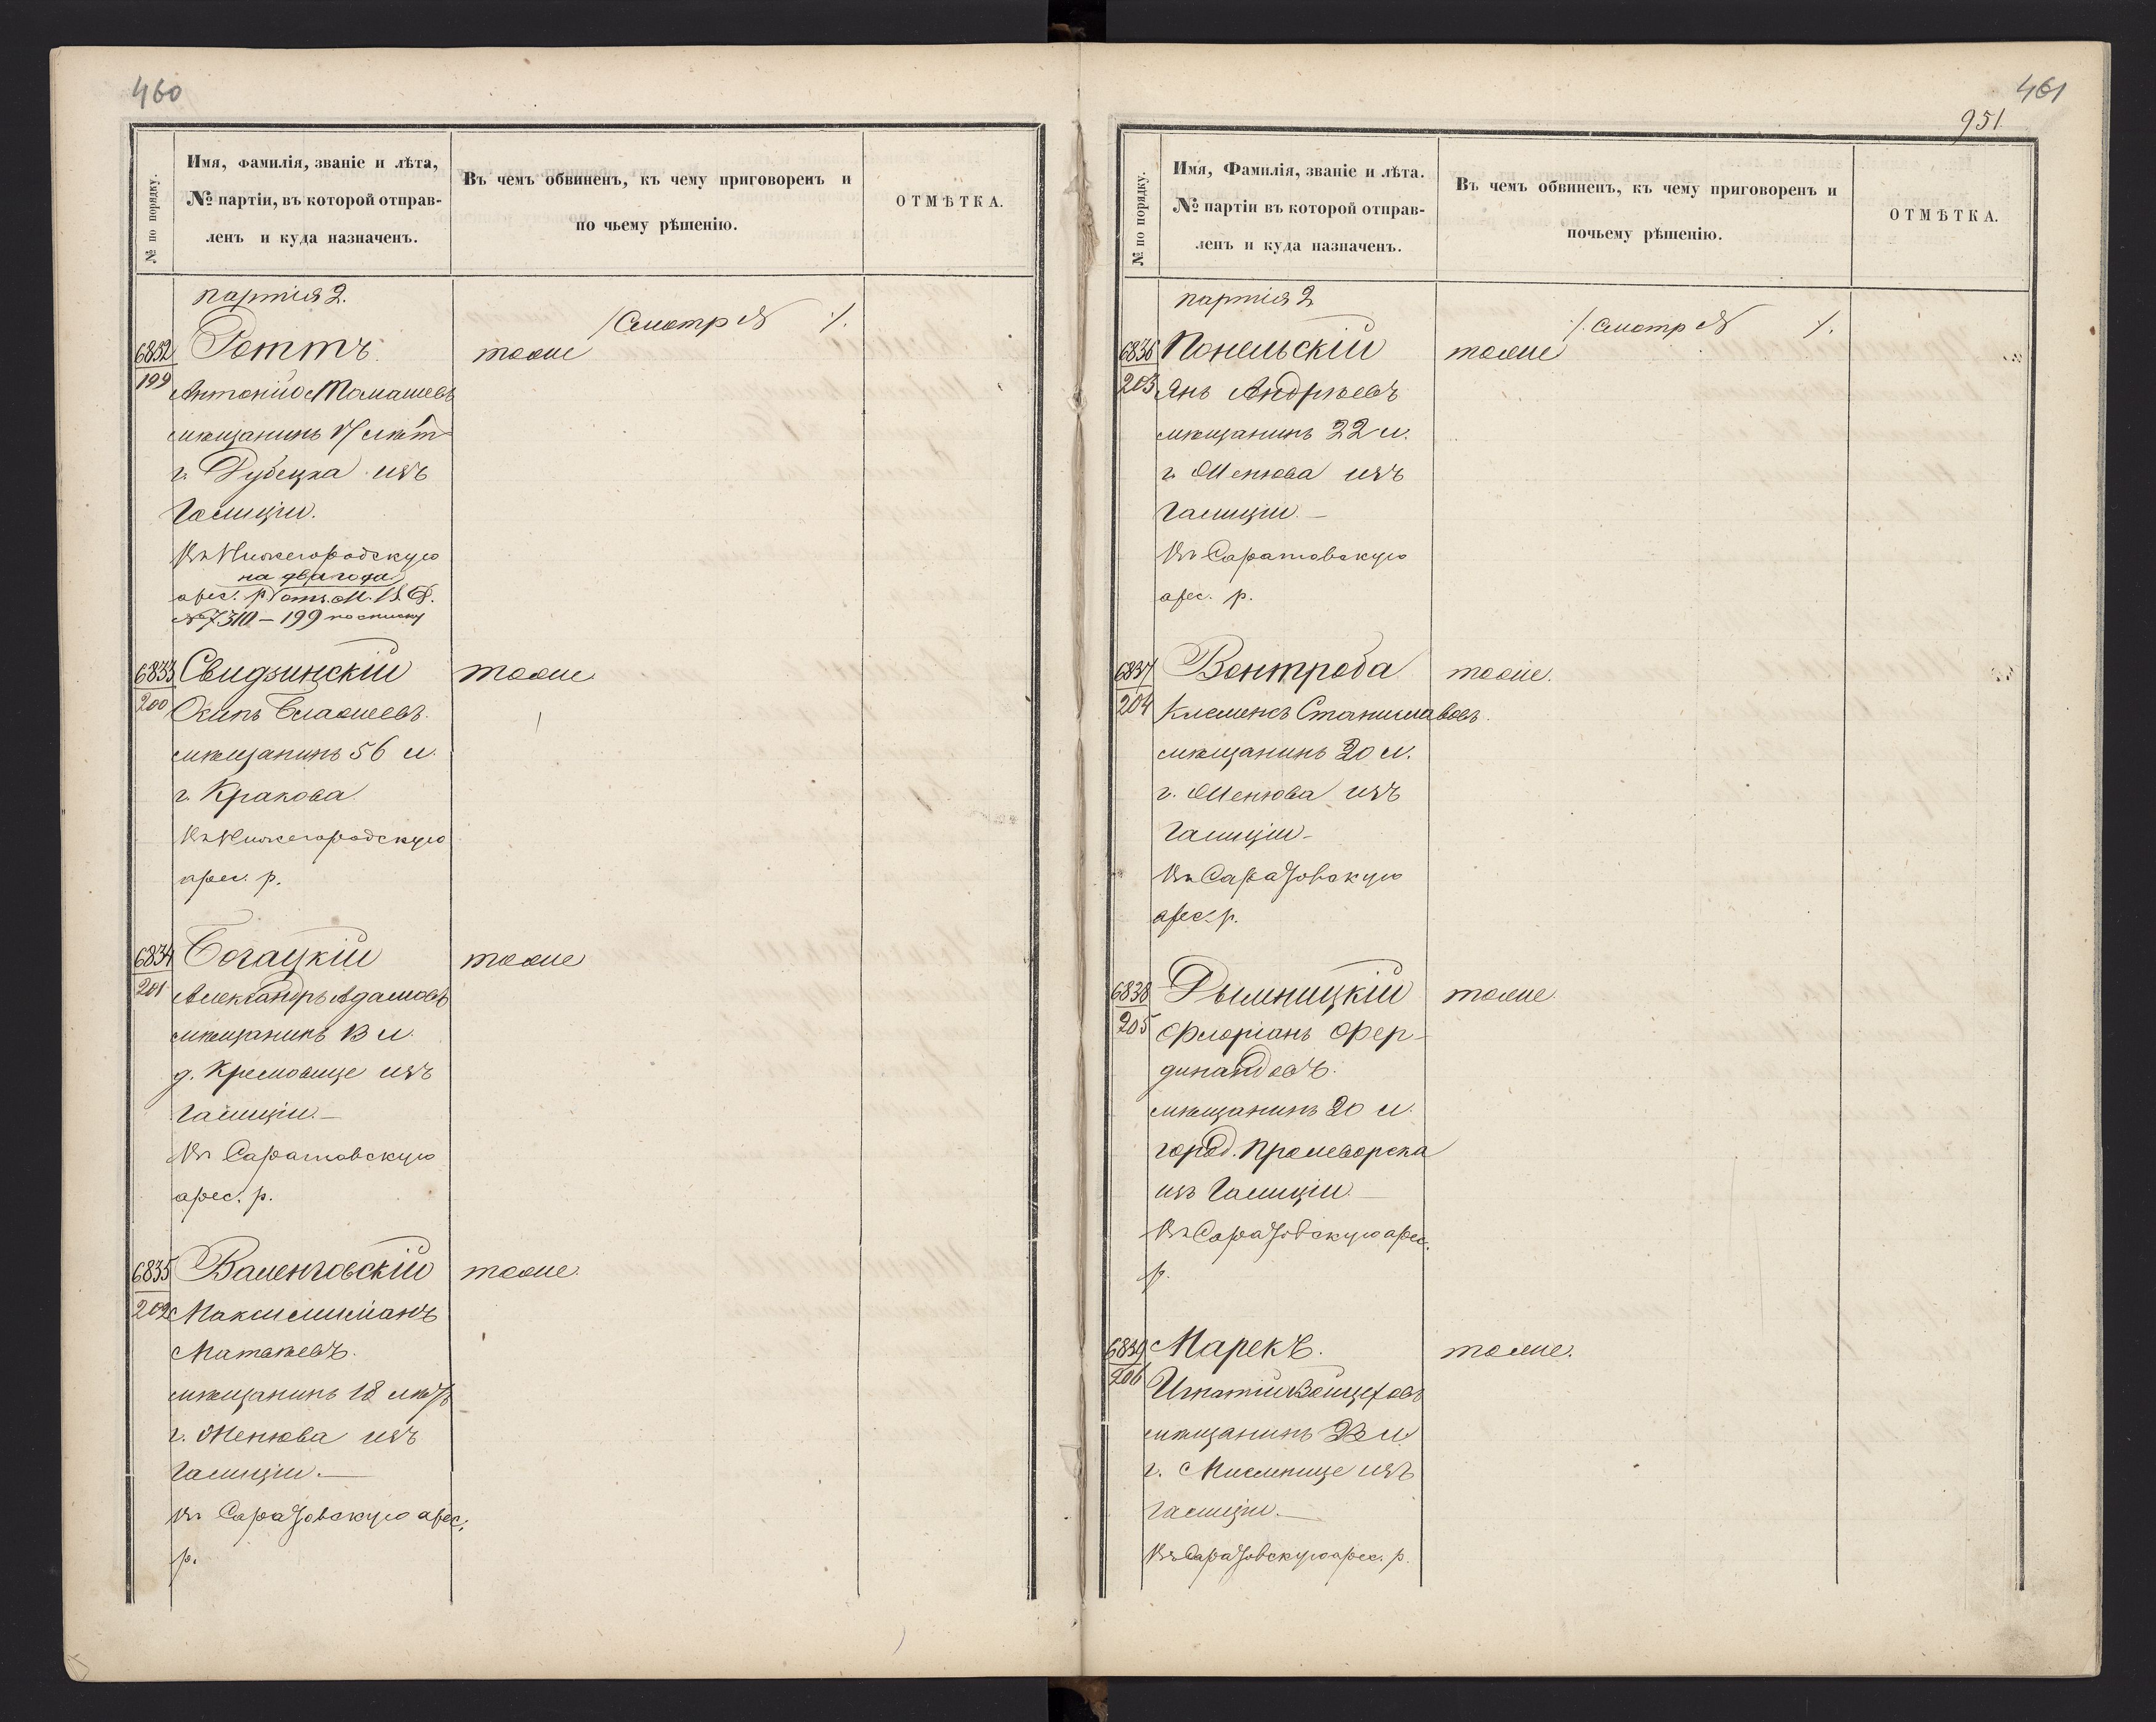 460
№ по порядку.
Имя, фамилія, званіе и лѣта,
№ партіи, въ которой отправ-
ленъ и куда назначенъ.
Въ чемъ обвиненъ, къ чему приговоренъ и
по чьему рѣшенію.
ОТМѢТКА.
партія 2.
/Смотр №   ·/.
6832 Роттъ тоже
199 Антоній Томашевъ
мѣщанинъ 17 лѣтъ
г. Дубецка изъ
Галиціи.
Въ Нижегородскую
на два года
арес. р. отн. М. В. Д.
№ 7310 – 199 по списку
6833 Свидзинскій тоже
200 Осипъ Блажеевъ.
мѣщанинъ 56 л.
г. Кракова
Въ Нижегородскую
арес. р.
6834 Богацкій тоже
201 Александръ Адамовъ
мѣщанинъ 13 л.
д. Кремовице изъ
Галиціи. —
Въ Саратовскую
арес. р.
6835 тоже.
202 Максимиліанъ
Матвѣевъ.
мѣщанинъ 18 лѣтъ
г. изъ
Галиціи. —
Въ Саратовскую арес.
р.
461
951
№ по порядку.
Имя, Фамилія, званіе и лѣта.
№ партіи въ которой отправ-
ленъ и куда назначенъ.
Въ чемъ обвиненъ, къ чему приговоренъ и
почьему рѣшенію.
ОТМѢТКА.
партія 2
·/. Смотр №   ·/.
6836 Понельскій тоже
203 Янъ Андрѣевъ
мѣщанинъ 22 л.
г. изъ
Галиціи. —
Въ Саратовскую
арес. р.
6837 Вонтроба тоже.
204 Клеменсъ Станиславовъ.
мѣщанинъ 20 л.
г. изъ
Галиціи —
Въ Саратовскую
арес. р.
6838 Дымницкій тоже.
205 Флоріанъ Фер-
динандовъ.
мѣщанинъ 20 л.
город. Пршеворска
изъ Галиціи. —
Въ Саратовскую арес.
р.
6839 Марекъ. тоже.
206 Игнатій Войцеховъ
мѣщанинъ 23 л.
г. Мисленице изъ
Галиціи. —
Въ Саратовскую арес. р.